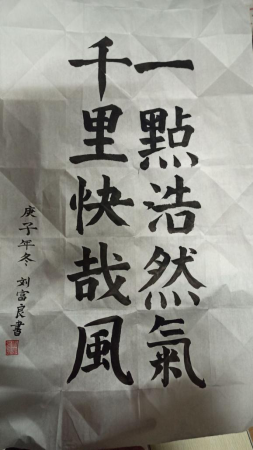 一點浩然氣
千里快哉風
庚子年冬 刘富良書